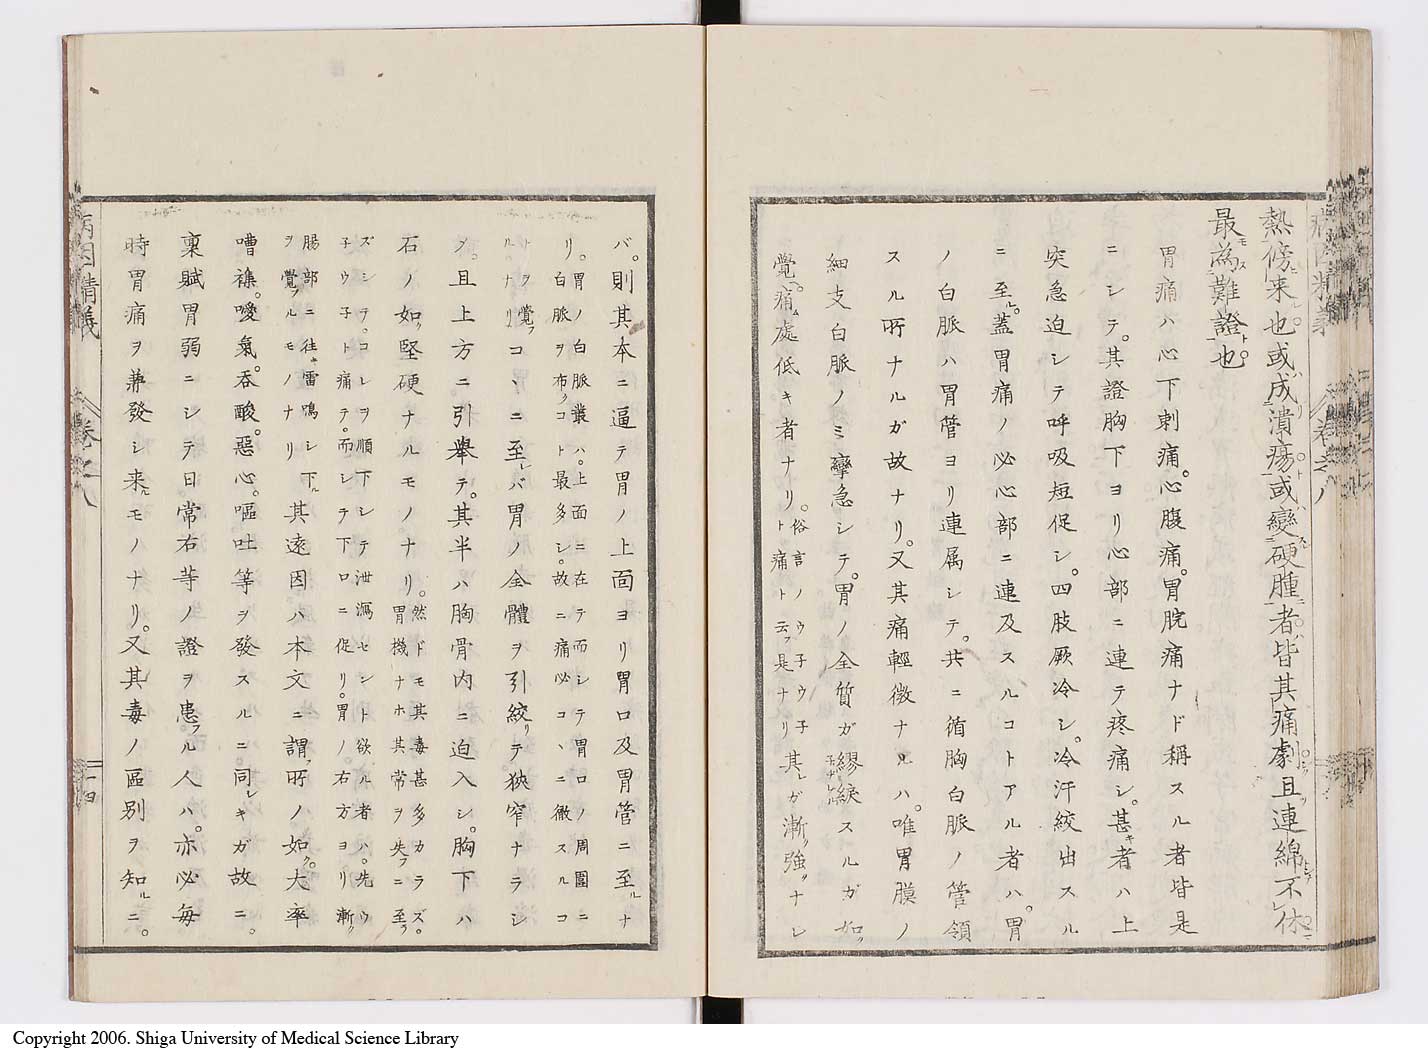 病因精義
卷之八
熱傍来ヒルニ也或ハ成リ潰瘍ト或ハ變スル硬腫ニ者ハ皆其痛劇ク且連綿トシテ不休マ
最モ為ス難證ト也
胃痛ハ心下刺痛。心腹痛。胃脘痛ナド稱スル者皆是
ニシテ。其證胸下ヨリ心部ニ連テ疼痛シ。甚キ者ハ上
突急迫シテ呼吸短促シ。四肢厥冷シ。冷汗絞出スル
ニ至ル。蓋胃痛ノ必心部ニ連及スルコトアル者ハ。胃
ノ白脈ハ胃管ヨリ連属シテ。共ニ循胸白脈ノ管領
スル所ナルガ故ナリ。又其痛輕微ナルハ。唯胃膜ノ
細支白脈ノミ攣急シテ。胃ノ全質ガ繆綟スルガ如ク
覺ヘ。痛ム處低キ者ナリ。俗言ノウ子ウ子
ト痛ト云フ是ナリ其レガ漸ク強クナレ
バ。則其本ニ逼テ胃ノ上面ヨリ胃口及胃管ニ至ルナ
リ。胃ノ白脈叢ハ。上面ニ在テ而シテ胃口ノ周圍ニ
白脈ヲ布クコト最多シ。故ニ痛必コヽニ徹スルコ
トヲ覺フ
ルナリコヽニ至レバ胃ノ全體ヲ引絞リテ狹窄ナラシ
メ。且上方ニ引舉テ。其半ハ胸骨内ニ迫入シ。胸下ハ
石ノ如ク堅硬ナルモノナリ。然ドモ其毒甚多カラズ。
胃機ナホ其常ヲ失フニ至ラ
ズシテ。コレヲ順下シテ泄瀉セント欲ル者ハ。先ウ
子ウ子ト痛テ。而シテ下口ニ促リ。胃ノ右方ヨリ漸ク
腸部ニ往キ雷鳴シ下ル
ヲ覺フルモノナリ其遠因ハ本文ニ謂フ所ノ如ク。大率
嘈襍。噯氣。吞酸。惡心。嘔吐等ヲ發スルニ。同レキガ故ニ。
稟賦胃弱ニシテ日常右等ノ證ヲ患フル人ハ。亦必毎
時胃痛ヲ兼發シ来ルモノナリ。又其毒ノ區別ヲ知ルニ。
病因精義
卷之八
十四
Copyright 2006. Shiga University of Medical Science Library